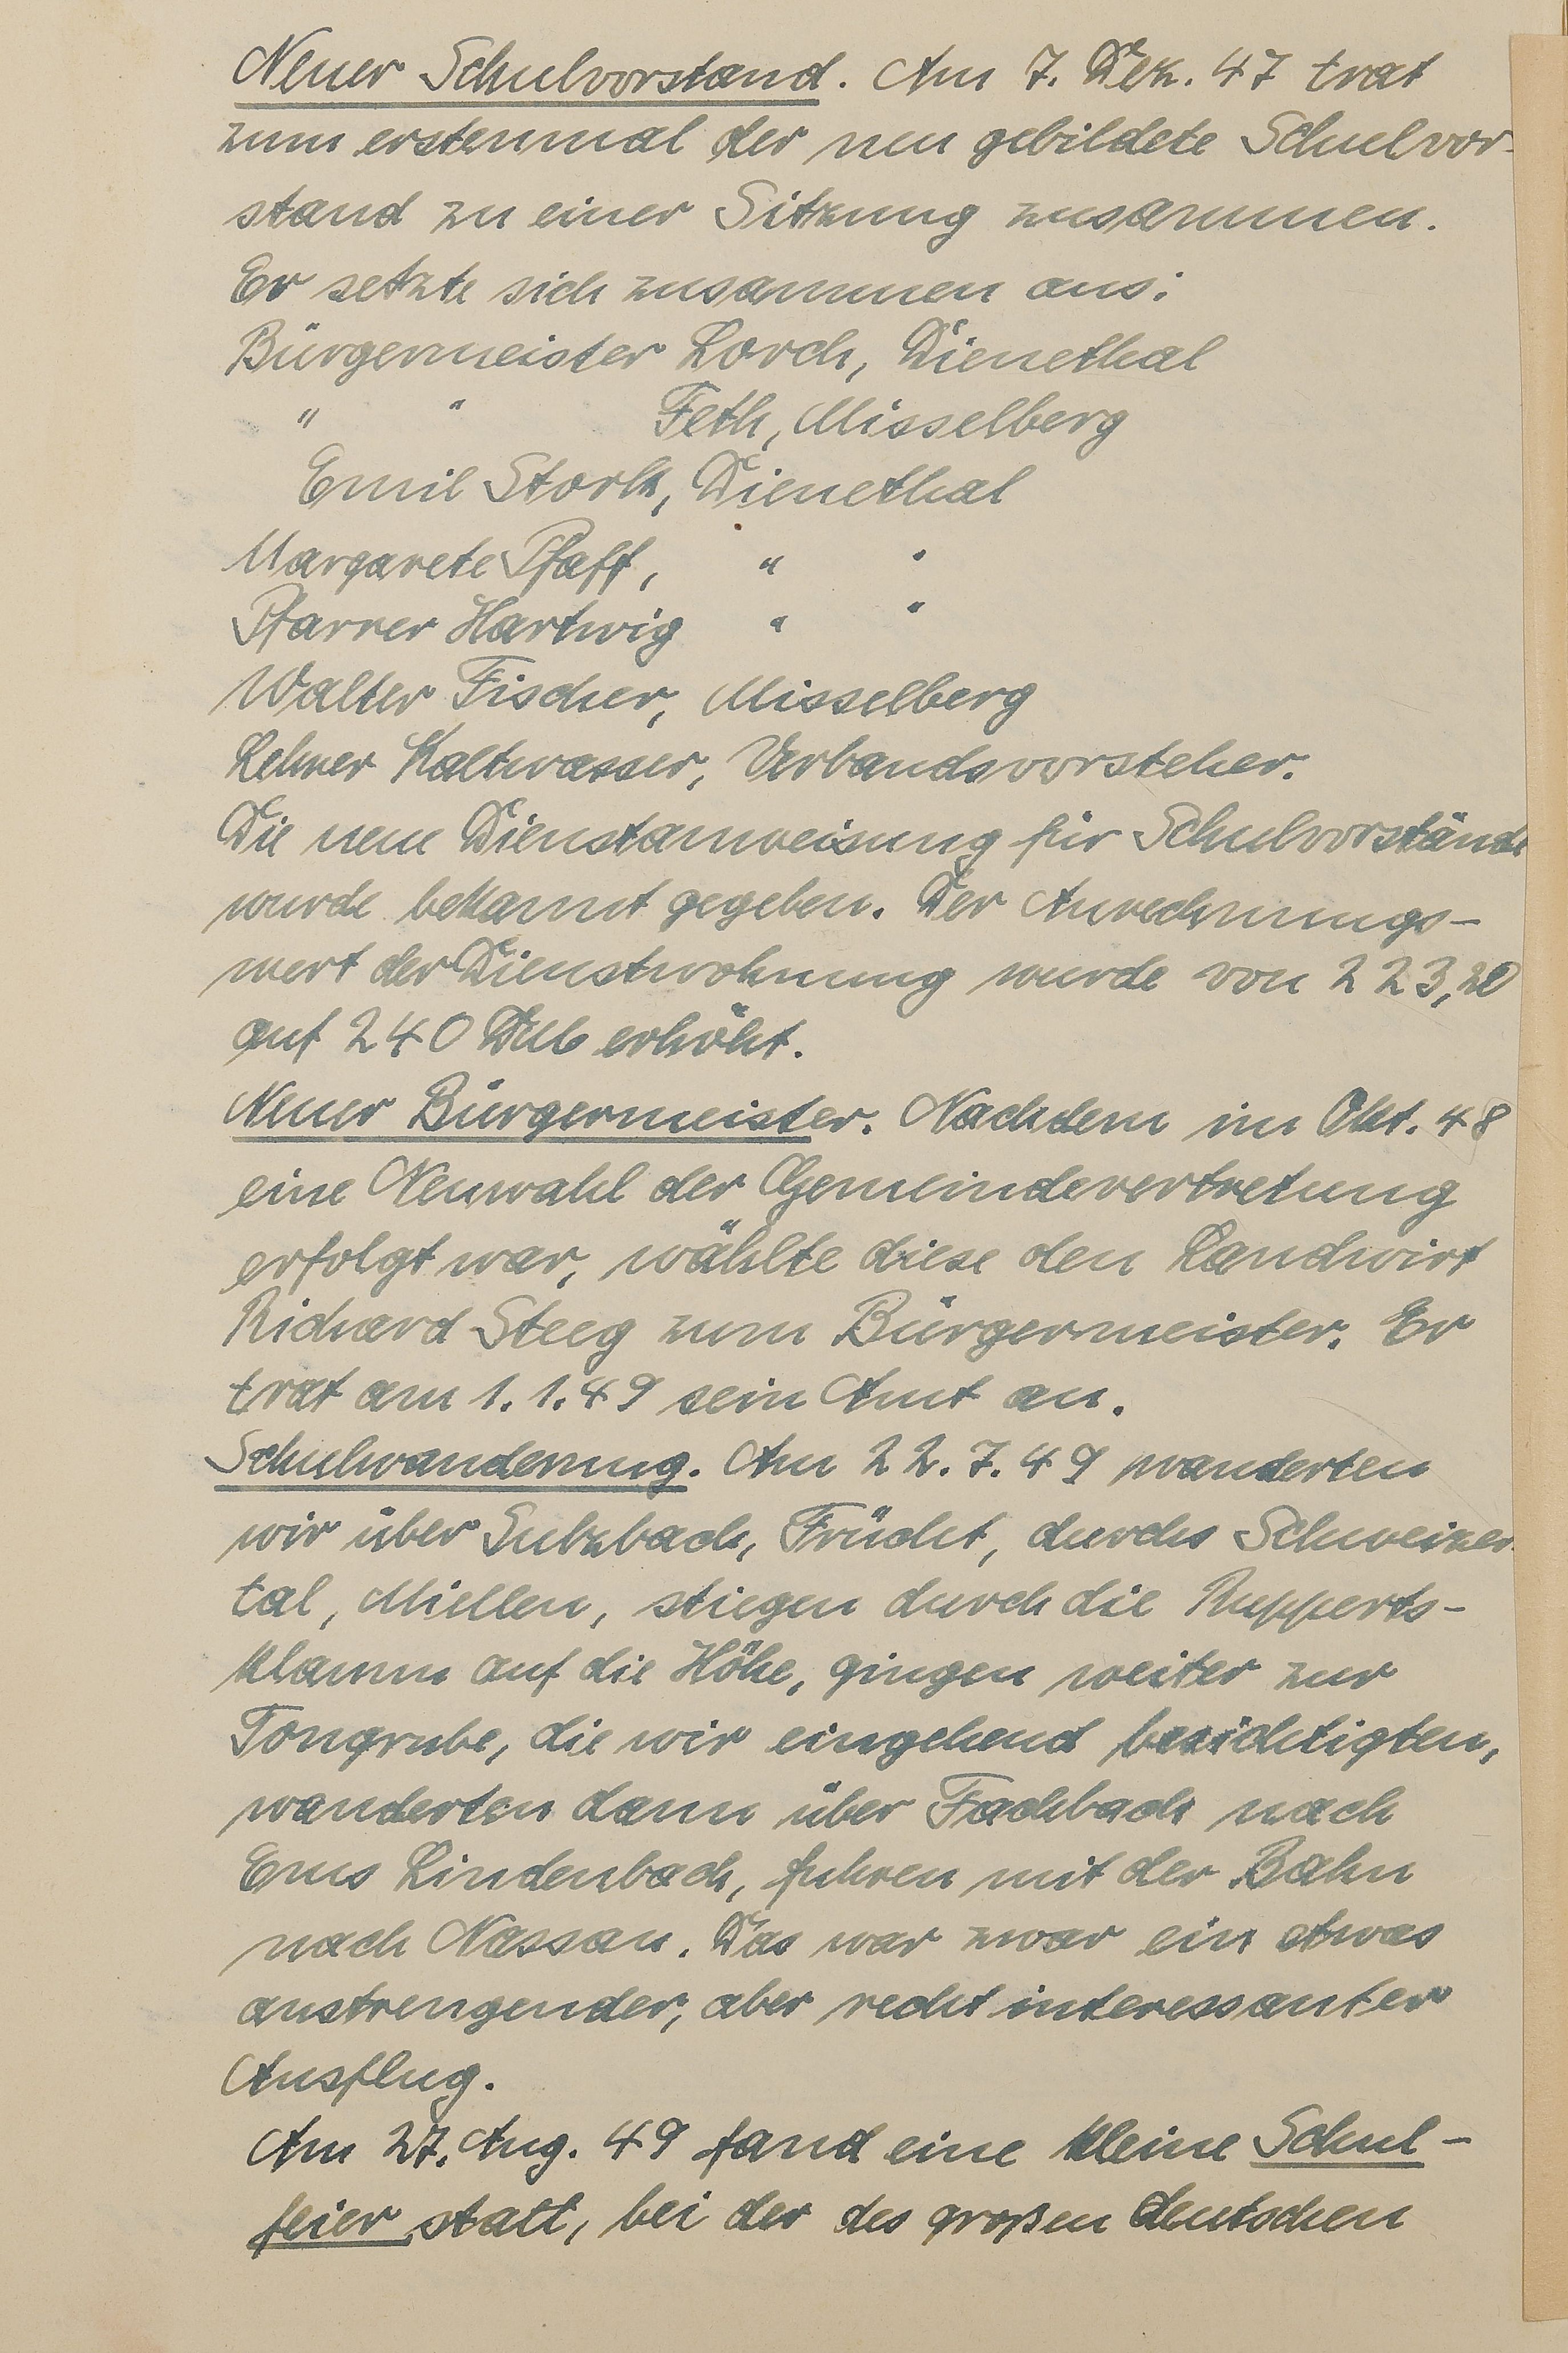 Neuer Schulvorstand. Am 7. Dez. 47 trat
zum erstenmal der neu gebildete Schulvor-
stand zu einer Sitzung zusammen.
Er setzte sich zusammen aus:
Bürgermeister Lorch, Dienethal
" " Feth, Misselberg
Emil Stork, Dienethal
Margarete Pfaff, " "
Pfarrer Hartwig " "
Walter Fischer, Misselberg
Lehrer Kaltwasser, Verbandsvorsteher.
Die neue Dienstanweisung für Schulvorstände
wurde bekannt gegeben. Der Anrechnungs-
wert der Dienstwohnung wurde von 223,20
auf 240 DM erhöht.
Neuer Bürgermeister. Nachdem im Okt. 48
eine Neuwahl der Gemeindevertretung
erfolgt war, wählte diese den Landwirt
Richard Steeg zum Bürgermeister. Er
trat am 1.1.49 sein Amt an.
Schulwanderung. Am 22.7.49 wanderten
wir über Sulzbach, Frücht, durchs Schweizer-
tal, Miellen, stiegen durch die Rupperts-
klamm auf die Höhe, gingen weiter zur
Tongrube, die wir eingehend besichtigten,
wanderten dann über Fachbach nach
Ems Lindenbach, fuhren mit der Bahn
nach Nassau. Das war zwar ein etwas
anstrengender, aber recht interessanter
Ausflug.
Am 27. Aug. 49 fand eine kleine Schul-
feier statt, bei der des großen deutschen